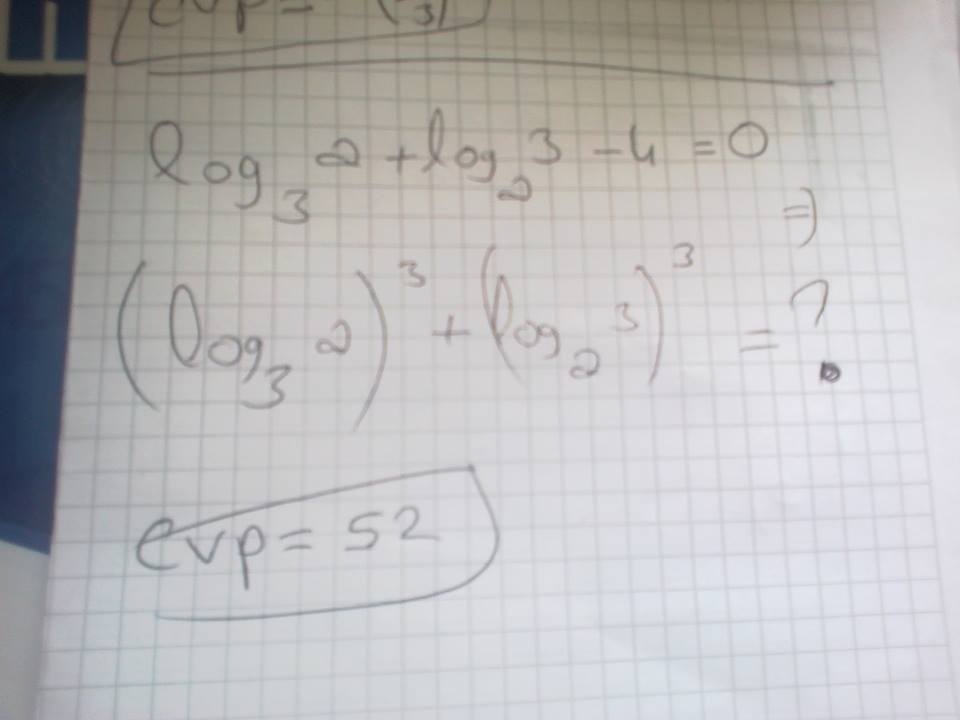 log₃ 2 + log₂ 3 - 4 = 0
⇒
(log₃ 2)³ + (log₂ 3)³ = ?
cvp = 52